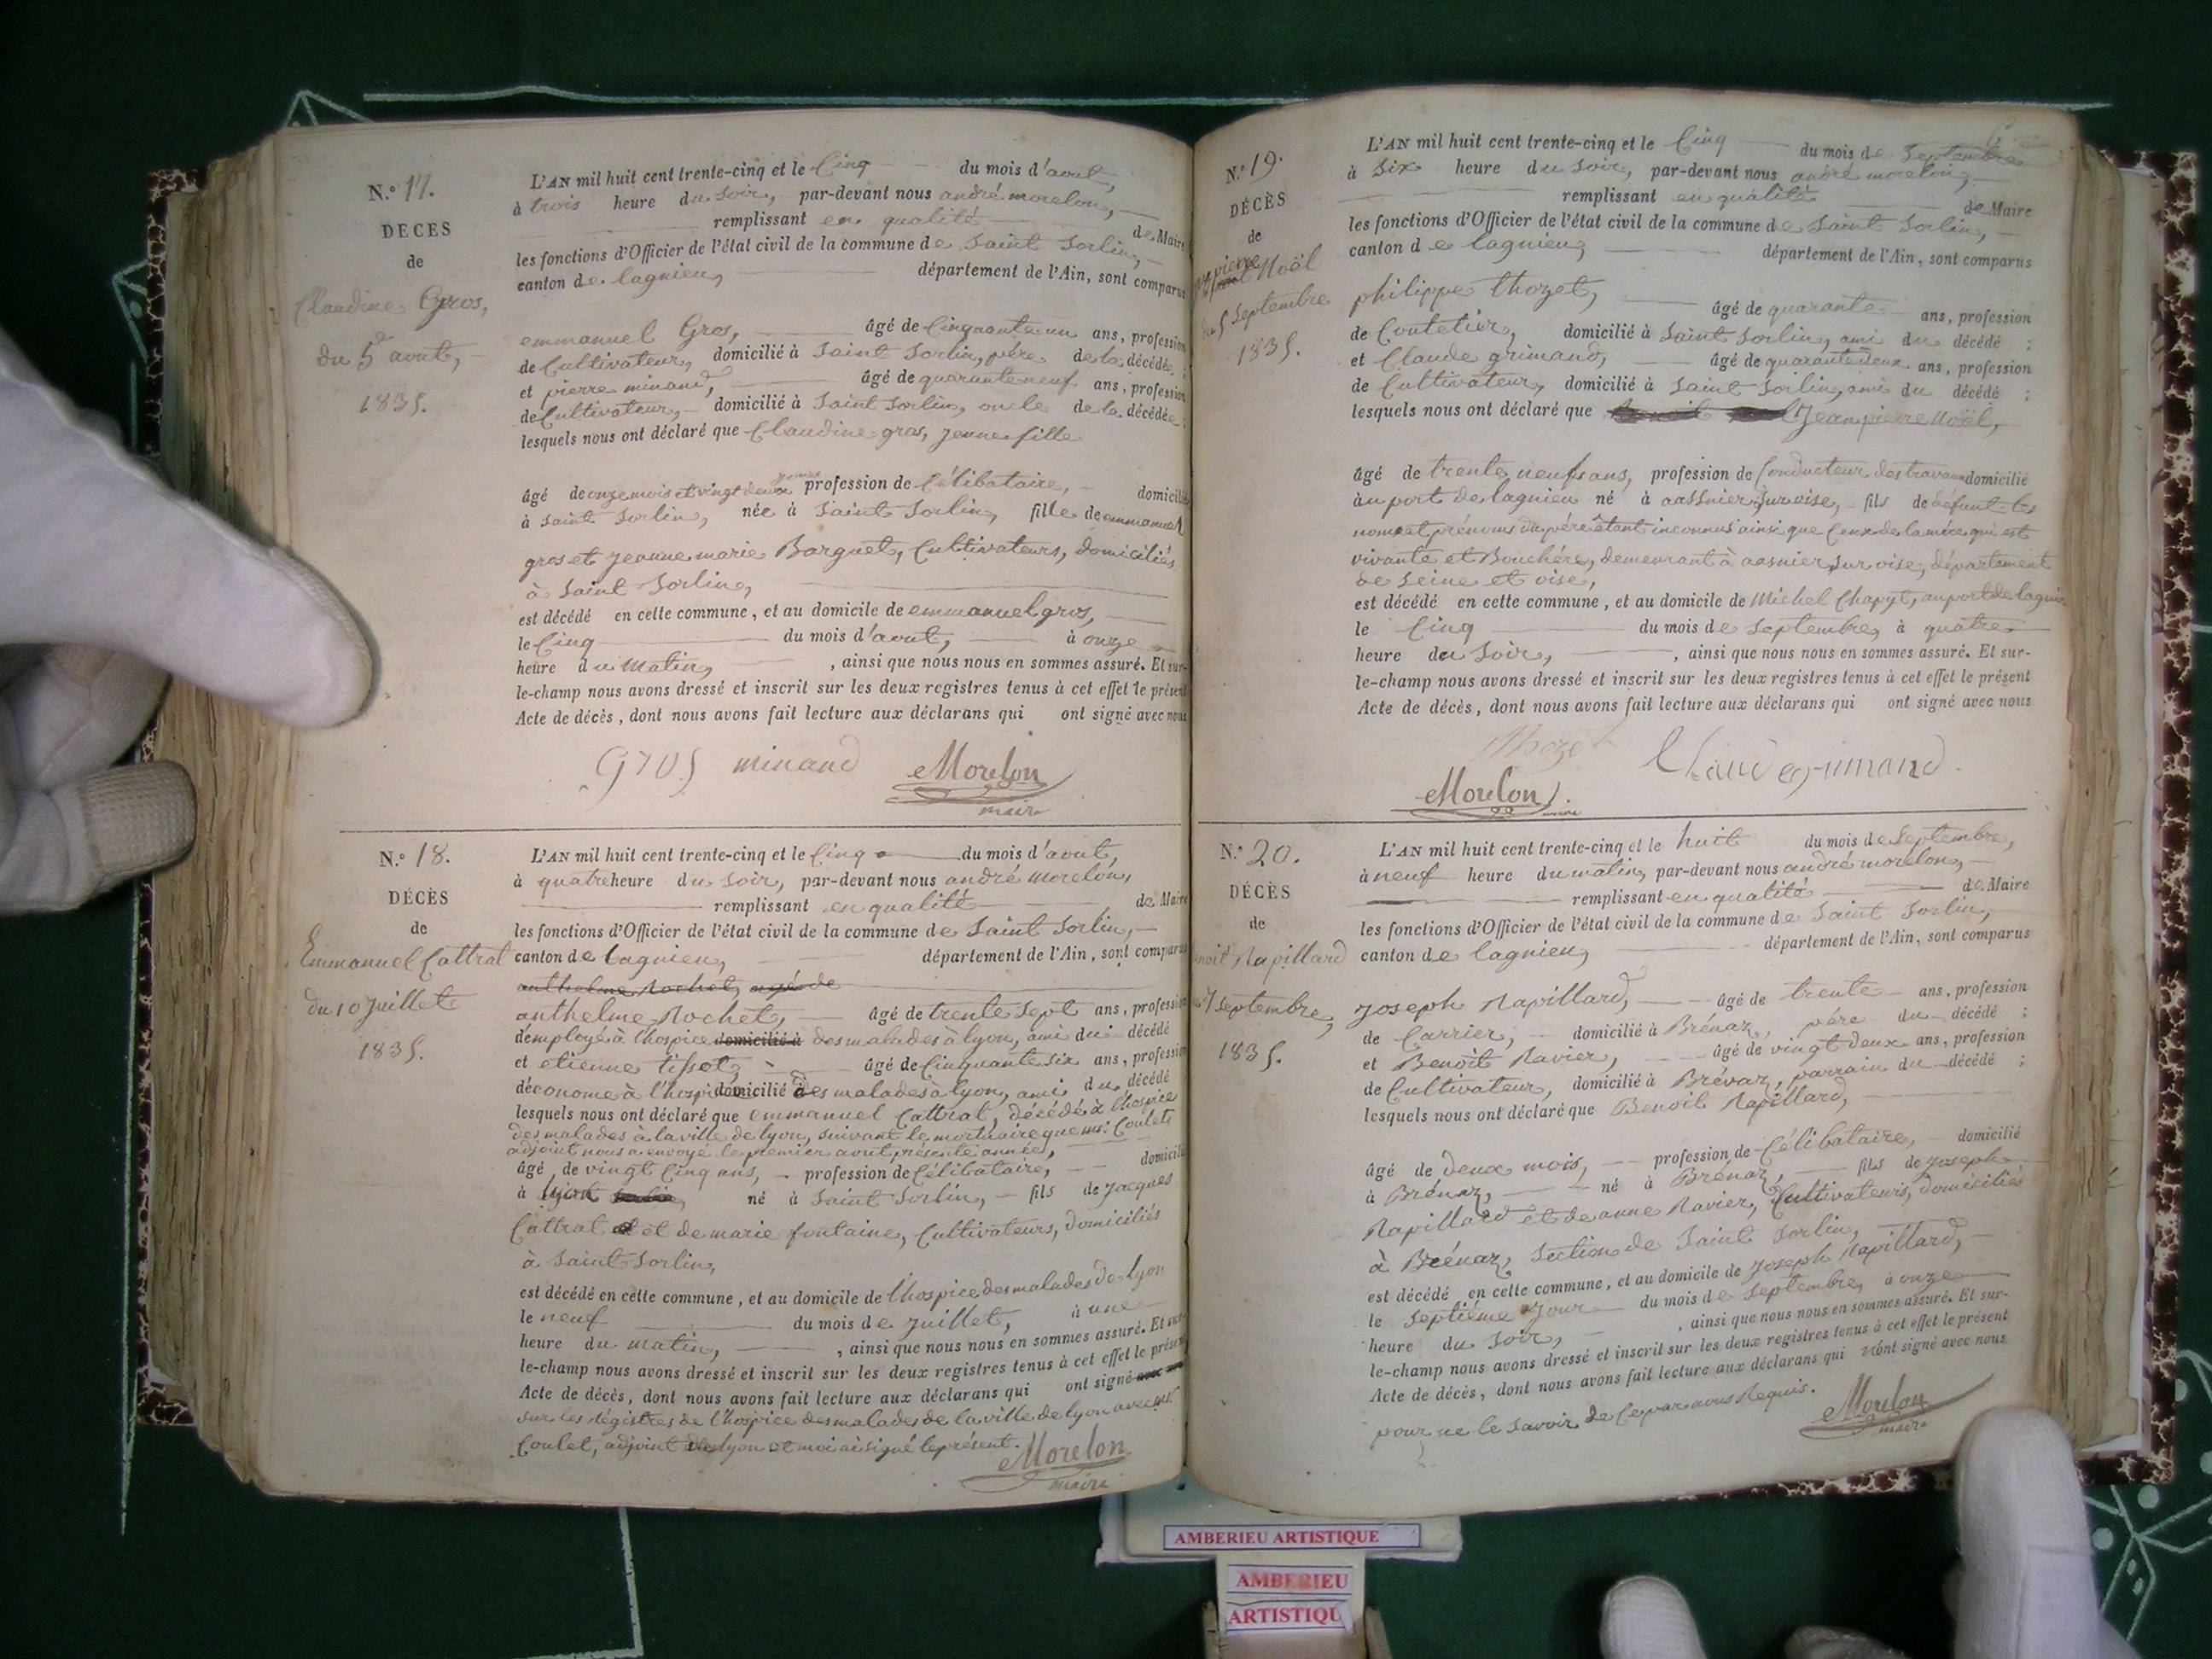 N.° 17.
DECES
de
Claudine Gros,
du 5 aout,
1835.
L'AN mil huit cent trente-cinq et le Cinq du mois d'aout,
à trois heure du soir, par-devant nous andré morelon,
remplissant en qualité de Maire
les fonctions d'Officier de l'état civil de la commune de Saint Sorlin,
canton de lagnieu, département de l'Ain, sont comparus
emmanuel Gros, âgé de Cinquante un ans, profession
de Cultivateur, domicilié à Saint Sorlin, père de la décédée ;
et pierre minand, âgé de quarante neuf ans, profession
de Cultivateur, domicilié à Saint Sorlin, oncle de la décédée ;
lesquels nous ont déclaré que Claudine gros, jeune fille
âgé de onze mois et vingt deux jours profession de Célibataire, domicilié
à Saint Sorlin, née à Saint Sorlin, fille de emmanuel
gros et jeanne marie Barguet, Cultivateurs, domiciliés
à Saint Sorlin,
est décédé en cette commune, et au domicile de emmanuel gros,
le Cinq du mois d'aout, à onze
heure du matin, , ainsi que nous nous en sommes assuré. Et sur-
le-champ nous avons dressé et inscrit sur les deux registres tenus à cet effet le présent
Acte de décès, dont nous avons fait lecture aux déclarans qui ont signé avec nous
gros minand Morelon
maire
N.° 18.
DÉCÈS
de
Emmanuel Cattrat
du 10 juillet
1835.
L'AN mil huit cent trente-cinq et le Cinq du mois d'aout,
à quatre heure du soir, par-devant nous andré morelon,
remplissant en qualité de Maire
les fonctions d'Officier de l'état civil de la commune de Saint Sorlin,
canton de lagnieu, département de l'Ain, sont comparus
anthelme Rochet, agé de
anthelme Rochet, âgé de trente sept ans, profession
d'employé à l'hospice domicilié à des malades à lyon, ami du décédé
et etienne tisset, âgé de Cinquante six ans, profession
d'économe à l'hospice domicilié à des malades à lyon, ami du décédé
lesquels nous ont déclaré que emmanuel Cattrat, décédé à l'hospice
des malades à la ville de lyon, suivant le mortuaire que mr. Coulet
adjoint nous a envoyé le premier aout présente année,
âgé de vingt Cinq ans, profession de Célibataire, domicilié
à lyon né à Saint Sorlin, fils de jacques
Cattrat et de marie fontaine, Cultivateurs, domiciliés
à Saint Sorlin,
est décédé en cette commune, et au domicile de l'hospice des malades de lyon
le neuf du mois de juillet, à une
heure du matin, , ainsi que nous nous en sommes assuré. Et sur-
le-champ nous avons dressé et inscrit sur les deux registres tenus à cet effet le présent
Acte de décès, dont nous avons fait lecture aux déclarans qui ont signé avec nous
sur les régistres de l'hospice des malades de la ville de lyon avec mr
Coulet, adjoint de lyon et moi ai signé le présent.
Morelon
maire
N.° 19.
DÉCÈS
de
pierre Noël
du 5 Septembre
1835.
L'AN mil huit cent trente-cinq et le Cinq du mois de Septembre
à Six heure du soir, par-devant nous andré morelon,
remplissant en qualité de Maire
les fonctions d'Officier de l'état civil de la commune de Saint Sorlin,
canton de lagnieu, département de l'Ain, sont comparus
philippe thozet, âgé de quarante ans, profession
de Coutelier, domicilié à Saint Sorlin, ami du décédé ;
et Claude grimand, âgé de quarante deux ans, profession
de Cultivateur, domicilié à Saint Sorlin, ami du décédé ;
lesquels nous ont déclaré que Jean pierre Noël,
âgé de trente neuf ans, profession de Conducteur des travaux domicilié
au port de lagnieu né à aasnier sur oise, fils de défunt les
nom et prénoms du père étant inconnus ainsi que Ceux de la mère qui est
vivante et Bouchère, demeurant à aasnier sur oise, département
de Seine et oise,
est décédé en cette commune, et au domicile de Michel Chapyt, au port de lagnieu
le Cinq du mois de Septembre, à quatre
heure du Soir, , ainsi que nous nous en sommes assuré. Et sur-
le-champ nous avons dressé et inscrit sur les deux registres tenus à cet effet le présent
Acte de décès, dont nous avons fait lecture aux déclarans qui ont signé avec nous
Thozet Claude grimand
Morelon
maire
N.° 20.
DÉCÈS
de
Benoit Rapillard
du 7 Septembre,
1835.
L'AN mil huit cent trente-cinq et le huit du mois de Septembre,
à neuf heure du matin, par-devant nous andré morelon,
remplissant en qualité de Maire
les fonctions d'Officier de l'état civil de la commune de Saint Sorlin,
canton de lagnieu, département de l'Ain, sont comparus
Joseph Rapillard, âgé de trente ans, profession
de Carrier, domicilié à Brénaz, père du décédé ;
et Benoît Ravier, âgé de vingt deux ans, profession
de Cultivateur, domicilié à Brévaz, parrain du décédé ;
lesquels nous ont déclaré que Benoit Rapillard,
âgé de deux mois, profession de Célibataire, domicilié
à Brénaz, né à Brénaz, fils de Joseph
Rapillard et de anne Ravier, Cultivateurs, domiciliés
à Brénaz, Section de Saint Sorlin,
est décédé en cette commune, et au domicile de Joseph Rapillard,
le Septième jour du mois de Septembre, à onze
heure du Soir, , ainsi que nous nous en sommes assuré. Et sur-
le-champ nous avons dressé et inscrit sur les deux registres tenus à cet effet le présent
Acte de décès, dont nous avons fait lecture aux déclarans qui n'ont signé avec nous
pour ne le savoir de Ce par nous Requis.
Morelon
maire
AMBERIEU ARTISTIQUE
AMBERIEU
ARTISTIQU